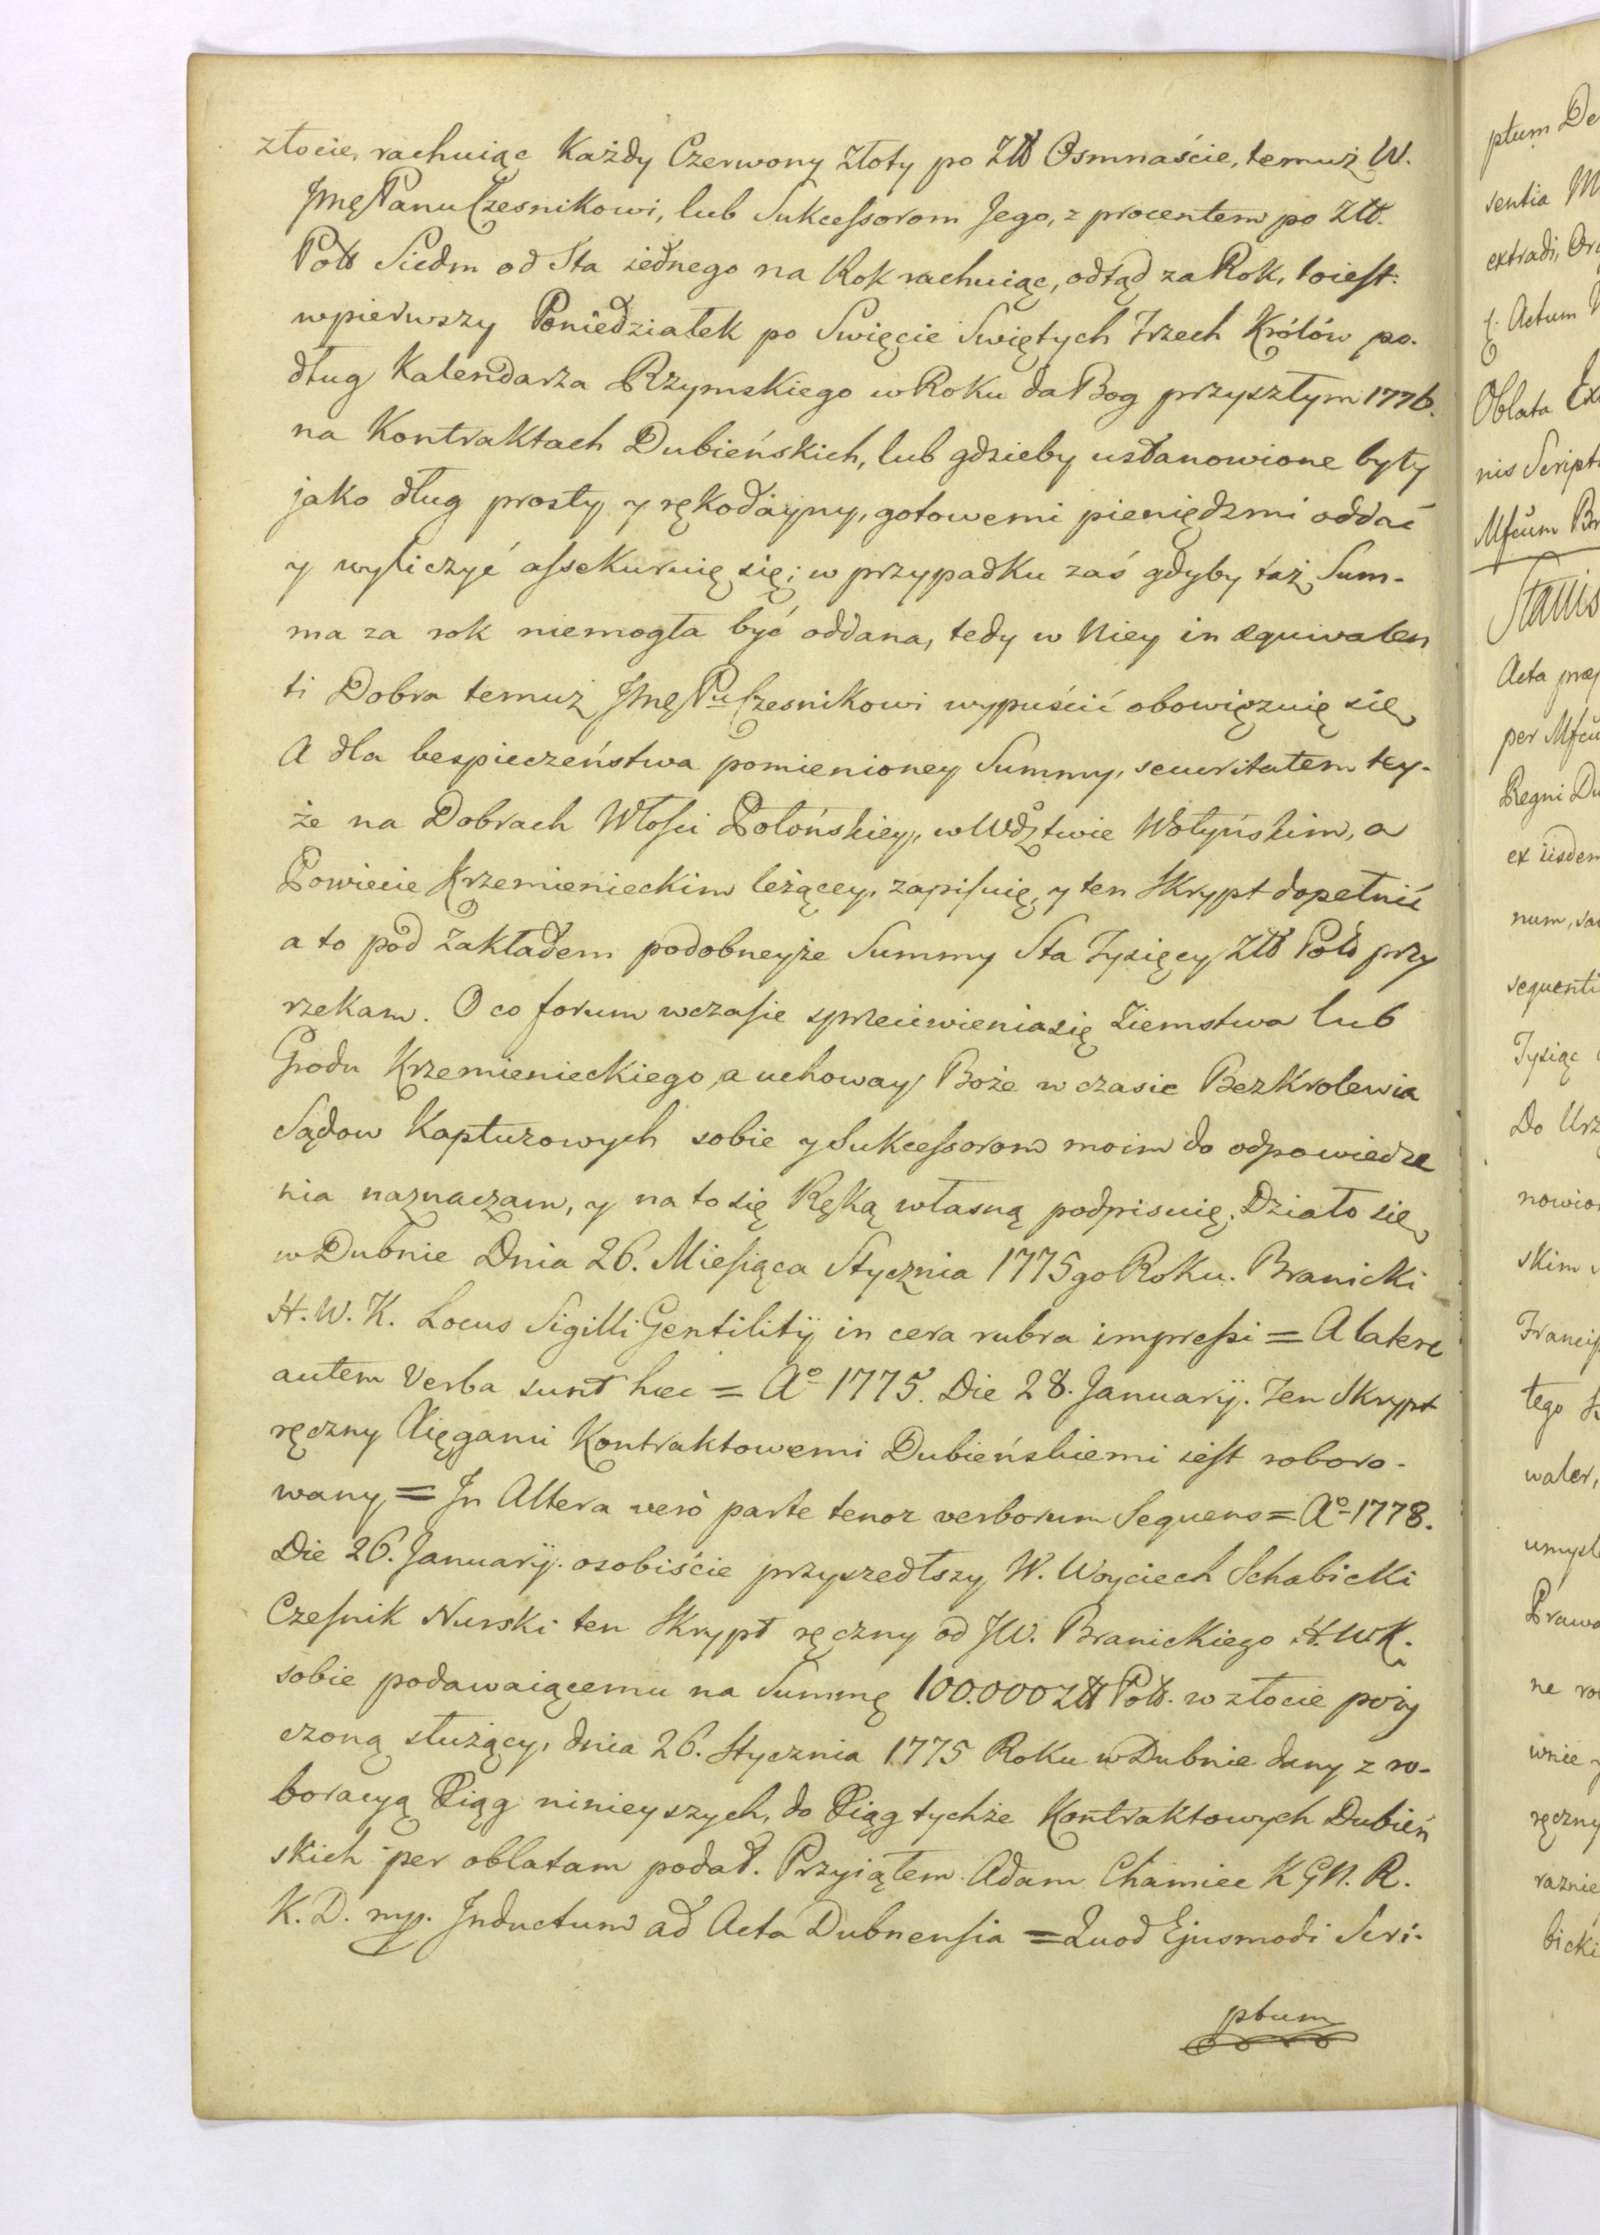 złocie, rachuiąc Każdy Czerwony Złoty po Złł Osmnaście, temuż W.
JmęPanu Czesnikowi, lub Sukcessorom Jego, z procentem po Złł.
Poll Siedm od Sta iednego na Rok rachuiąc, odtąd za Rok, toiest:
wpierwszy Poniedziałek po Swięcie Swiętych Trzech Królów po-
dług Kalendarza Rzymskiego w Roku da Bog przyszłym 1776.
na Kontraktach Dubieńskich, lub gdzieby ustanowione były
jako dług prosty y rękodayny, gotowemi pieniędzmi oddać
y wyliczyć assekuruię się; w przypadku zaś gdyby taż Sum-
ma za rok niemogła być oddana, tedy w Niey in equivalen
ti Dobra temuż Jmę Pu Czesnikowi wypuścić obowięzuię się,
A dla bespieczeństwa pomienioney Summy, securitatem tey-
że na Dobrach Włości Połońskiey, w Wdztwie Wołyńskim, a
Powiecie Krzemienieckim leżącey, zapisuię, y ten Skrypt dopełnić
a to pod Zakładem podobneyże Summy Sta Tysięcy Złł Poll przy
rzekam. O co forum wczasie sprzeciwienia się Ziemstwa lub
Grodu Krzemienieckiego, a uchoway Boże w czasie BezKrolewia
Sądow Kapturowych sobie y Sukcessorom moim do odpowiedze
nia naznaczam, y na to się Ręką własną podpisuię. Działo się,
w Dubnie Dnia 26. Miesiąca Stycznia 1775go Roku. Branicki
H. W. K. Locus Sigilli Gentilitÿ in cera rubra impressi = A latere
autem Verba sunt hæc = Aº 1775. Die 28. Januarÿ. Ten Skrypt
ręczny Xięgami Kontraktowemi Dubieńskiemi iest roboro-
wany = In Altera verò parte tenor verborum Sequens = Aº 1778.
Die 26. Januarÿ. osobiście przyszedłszy W. Woyciech Schabicki
Czesnik Nurski ten Skrypt ręczny od JW. Branickiego H. W K.
sobie podawaiącemu na Summę 100.000 Złł Poll. w złocie poży
czoną służący, dnia 26. Stycznia 1775 Roku w Dubnie dany z ro-
boracyą Xiąg ninieyszych, do Xiąg tychże Kontraktowych Dubień
skich per oblatam podał. Przyiąłem Adam Chamiec K G N. R.
K. D. mp. Inductum ad Acta Dubnensia = Quod Ejusmodi Scri-
ptum
ptum De
sentia M
extradi, Or
Actum
Oblata Ex
nis Script
Mfcum Br
Stanis
Acta præ
per Mfcu
Regni Du
ex iisdem
num, sa
sequenti
Tysiąc
Do Urz
nowio
skim
Francis
tego S
waler,
umysl
Prawo
ne ro
wnie y
ręczny
raznie
bicki